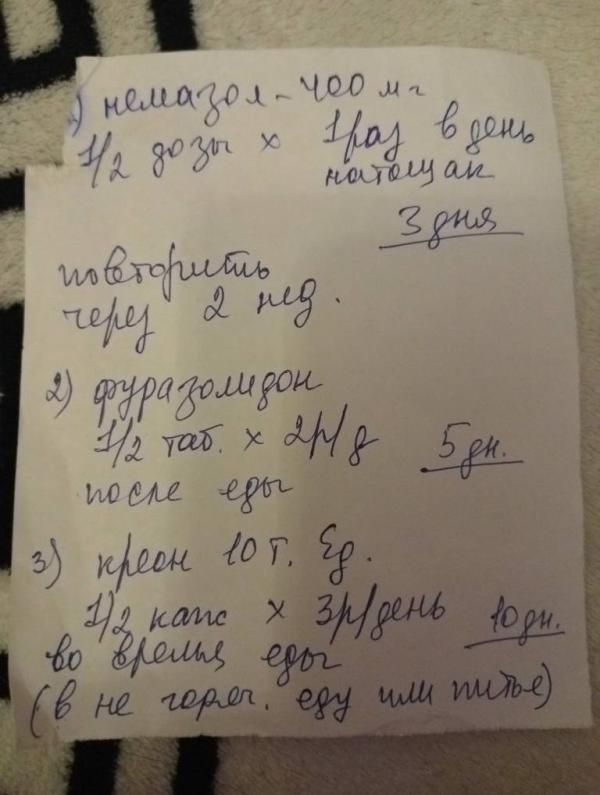 1) немазол - 400 мг
1/2 дозы х 1 раз в день
натощак
3 дня
повторить
через 2 нед.
2) фуразолидон
1/2 таб. х 2р/д 5 дн.
после еды
3) креон 10 т. Ед.
1/2 капс х 3р/день 10 дн.
во время еды
(в не горяч. еду или питье)